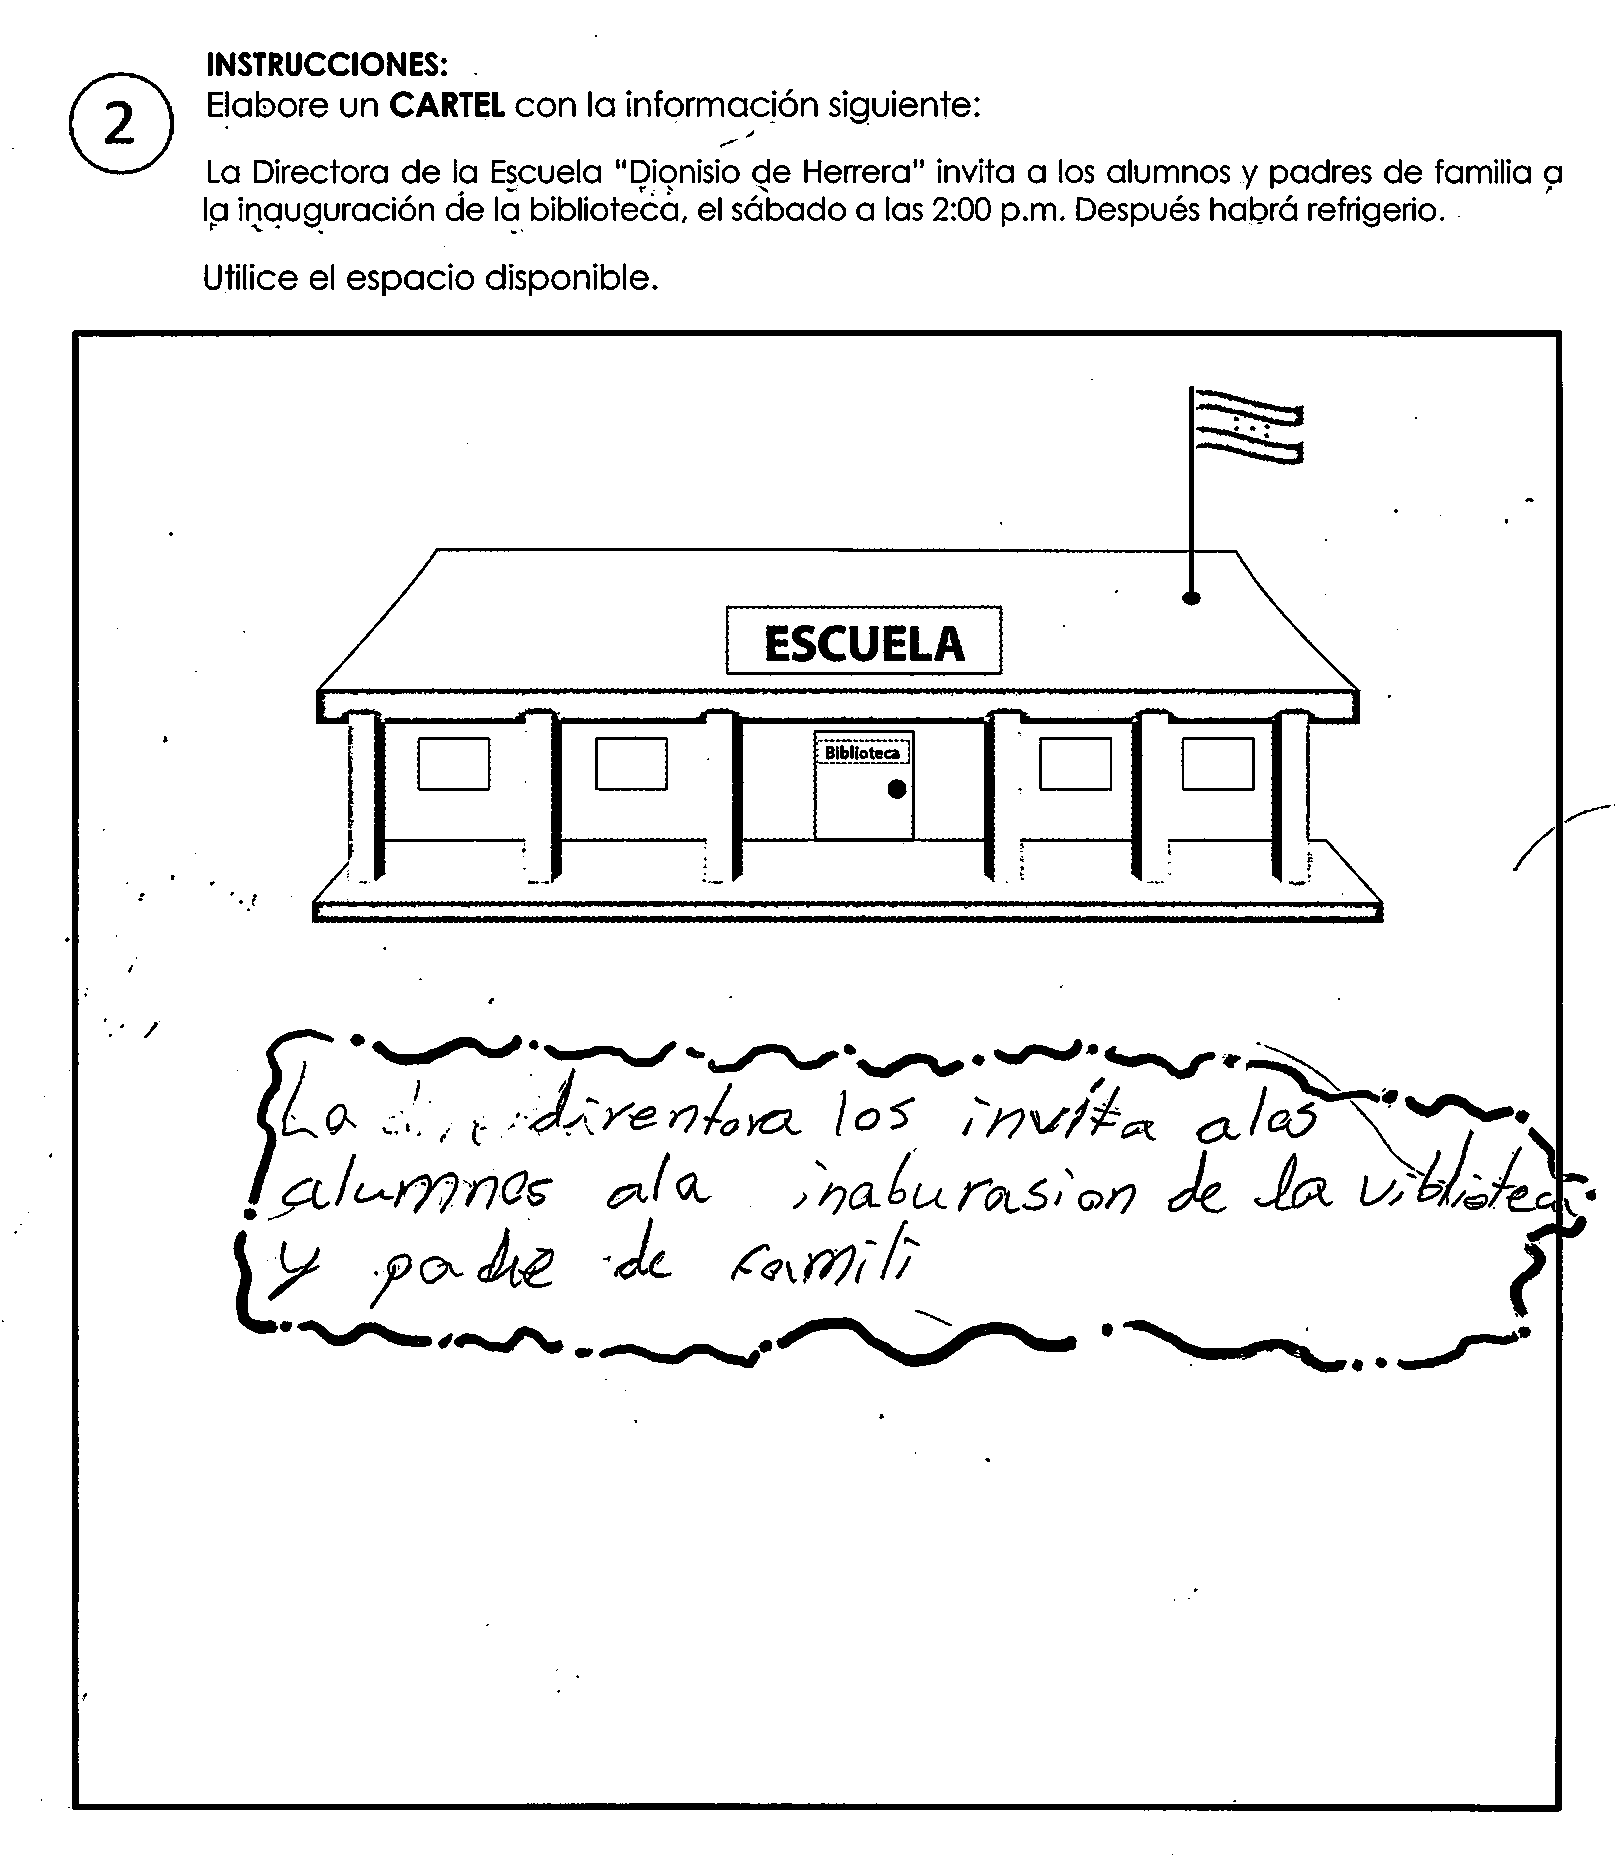 INSTRUCCIONES:
2
Elabore un CARTEL con la información siguiente:
La Directora de la Escuela "Dionisio de Herrera" invita a los alumnos y padres de familia a
la inauguración de la biblioteca, el sábado a las 2:00 p.m. Después habrá refrigerio.
Utilice el espacio disponible.
ESCUELA
Biblioteca
La direntora los invita alos
alumnos ala inaburasion de la viblioteca
y padre de famili